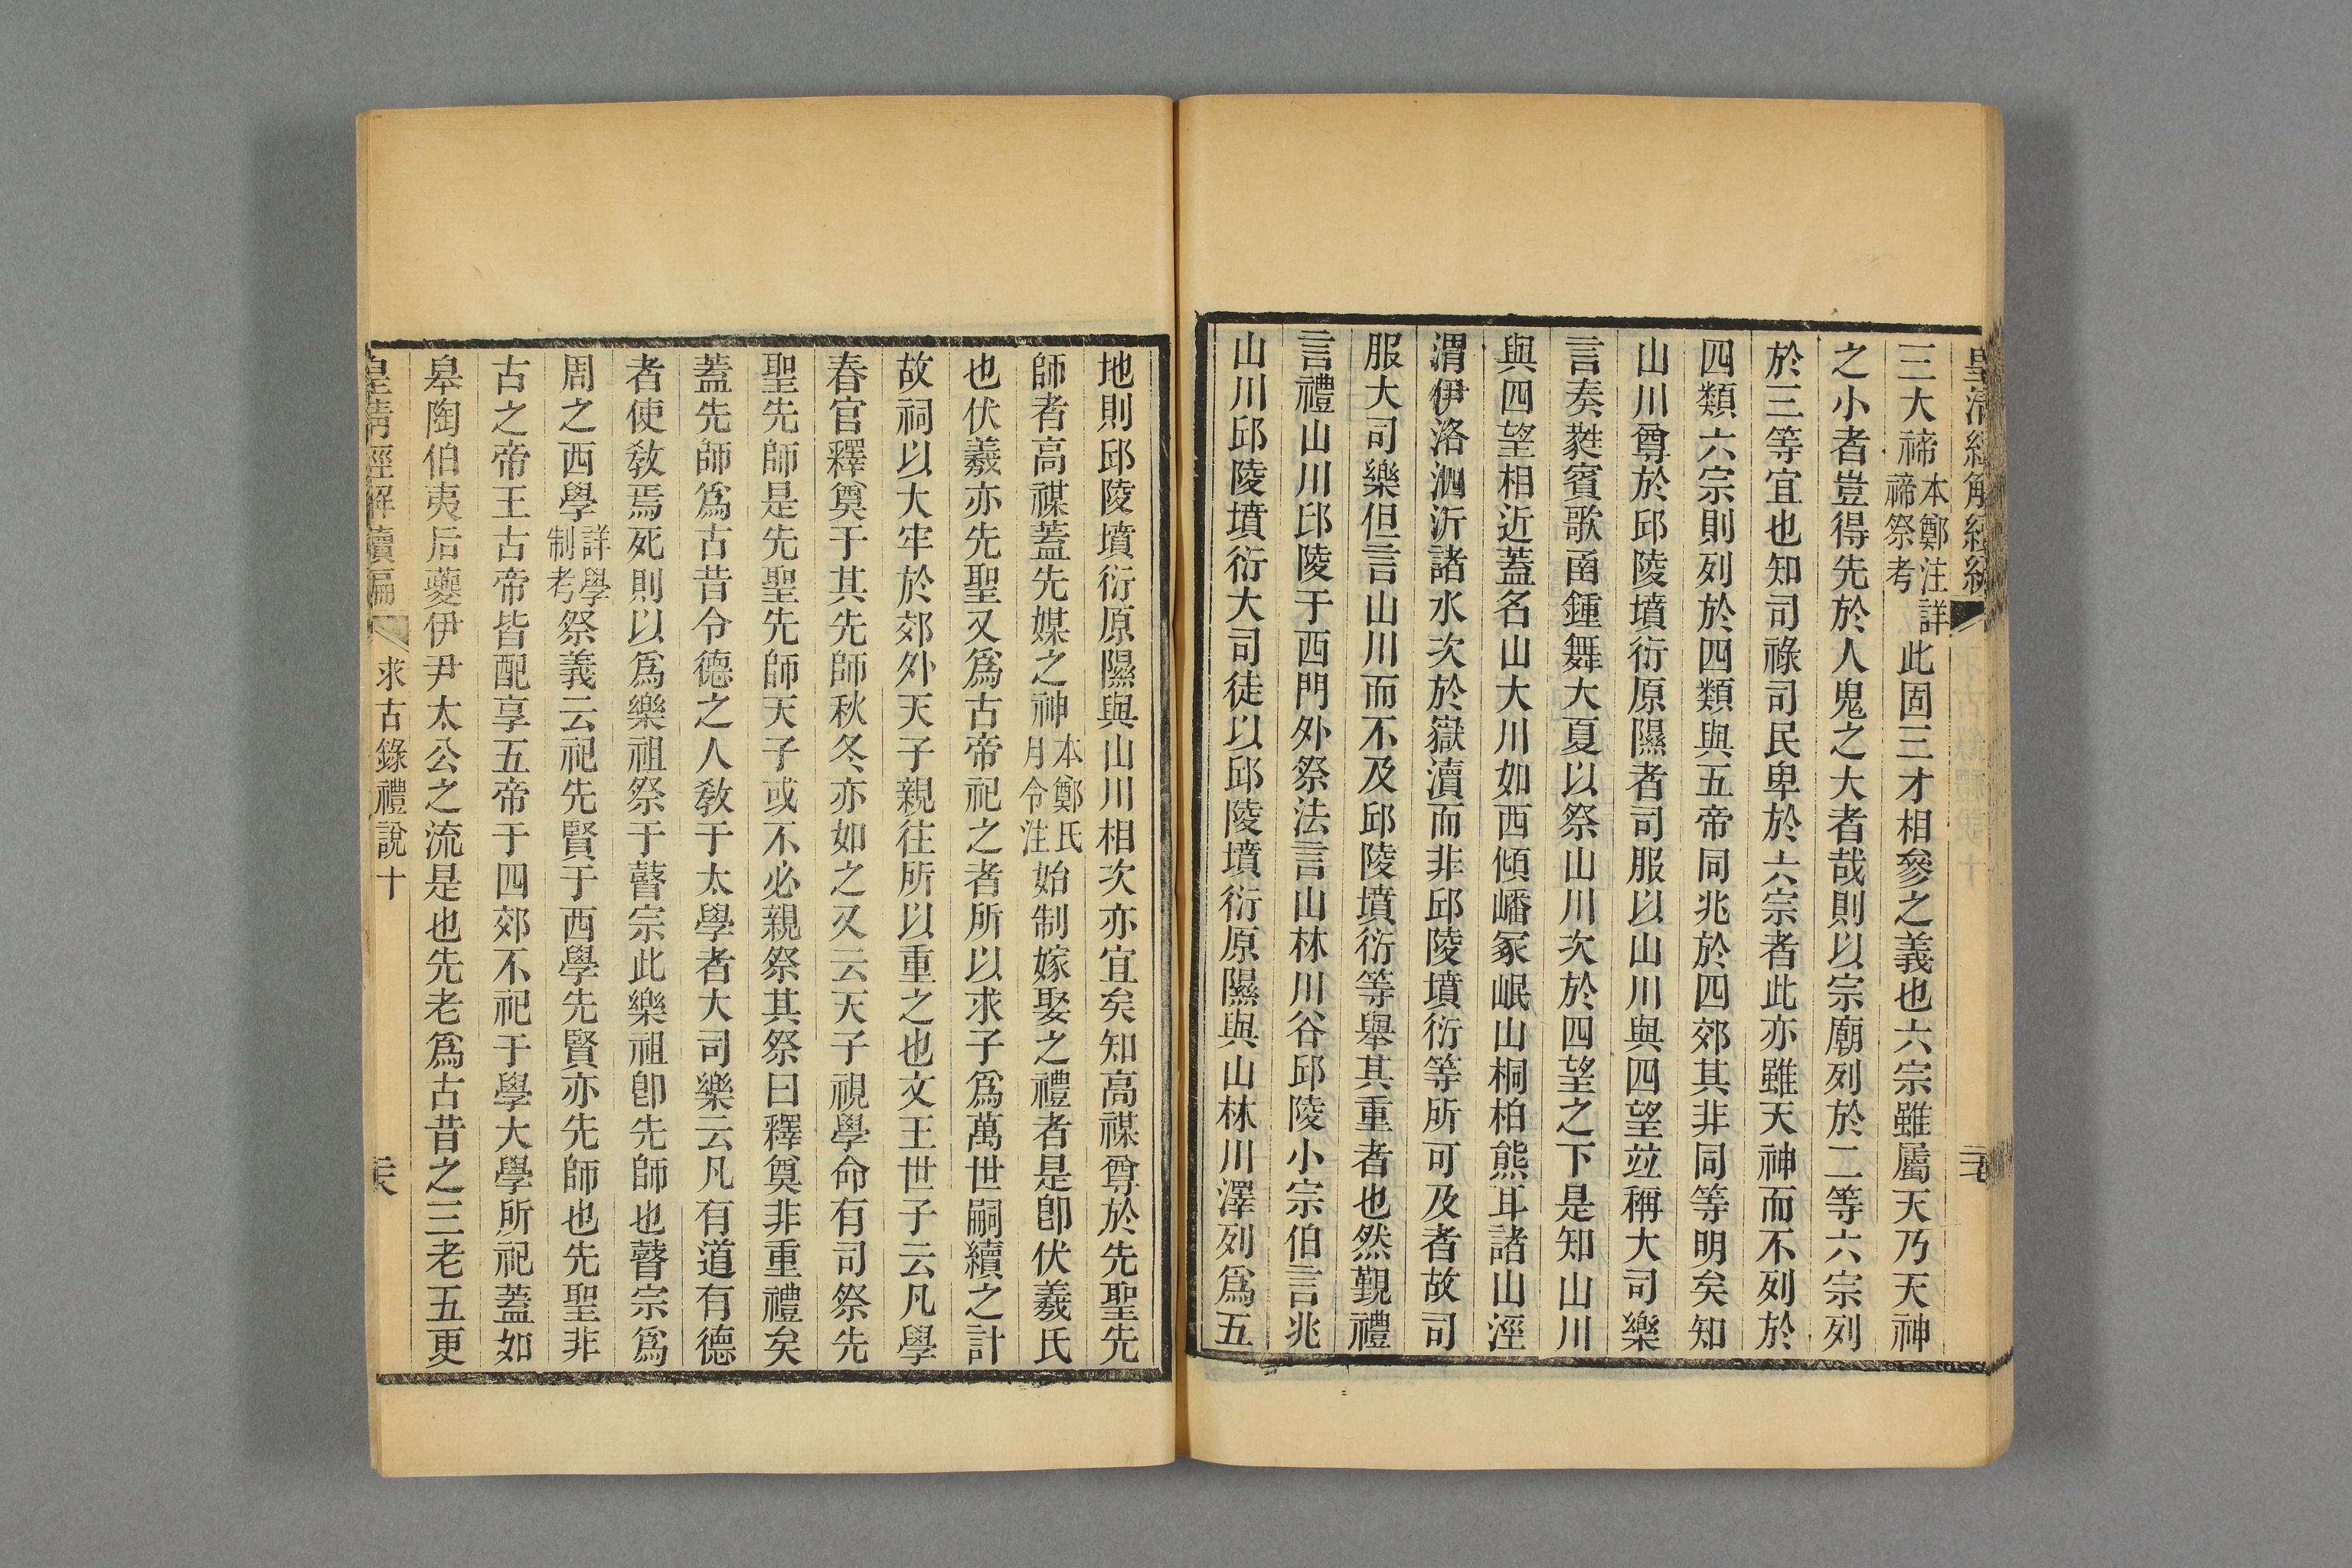 皇清經解續編
三大禘本鄭注詳禘祭考此固三才相參之義也六宗雖屬天乃天神
之小者豈得先於人鬼之大者哉則以宗廟列於二等六宗列
於三等宜也知司祿司民卑於六宗者此亦雖天神而不列於
四類六宗則列於四類與五帝同兆於四郊其非同等明矣知
山川尊於邱陵墳衍原隰者司服以山川與四望竝稱大司樂
言奏蕤賓歌函鍾舞大夏以祭山川次於四望之下是知山川
與四望相近蓋名山大川如西傾嶓冢岷山桐柏熊耳諸山涇
渭伊洛泗沂諸水次於嶽瀆而非邱陵墳衍等所可及者故司
服大司樂但言山川而不及邱陵墳衍等舉其重者也然覲禮
言禮山川邱陵于西門外祭法言山林川谷邱陵小宗伯言兆
山川邱陵墳衍大司徒以邱陵墳衍原隰與山林川澤列爲五
地則邱陵墳衍原隰與山川相次亦宜矣知高禖尊於先聖先
師者高禖蓋先媒之神本鄭氏月令注始制嫁娶之禮者是卽伏羲氏
也伏羲亦先聖又爲古帝祀之者所以求子爲萬世嗣續之計
故祠以大牢於郊外天子親往所以重之也文王世子云凡學
春官釋奠于其先師秋冬亦如之又云天子視學命有司祭先
聖先師是先聖先師天子或不必親祭其祭曰釋奠非重禮矣
蓋先師爲古昔令德之人敎于太學者大司樂云凡有道有德
者使敎焉死則以爲樂祖祭于瞽宗此樂祖卽先師也瞽宗爲
周之西學詳學制考祭義云祀先賢于西學先賢亦先師也先聖非
古之帝王古帝皆配享五帝于四郊不祀于學大學所祀蓋如
皋陶伯夷后夔伊尹太公之流是也先老爲古昔之三老五更
皇清經解續編 求古錄禮說十